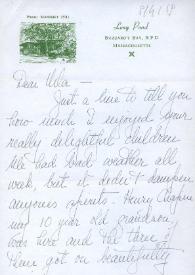 Long Pond
Buzzard's Bay, R.F.D.
Massachusetts
Dear Ulla —
Just a line to tell you
how much I enjoyed your
really delightful children
We had bad weather all
week, but it didn't dampen
anyones spirits. Henry
my 10 year old grandson
was here and the three of
them got on beautifully